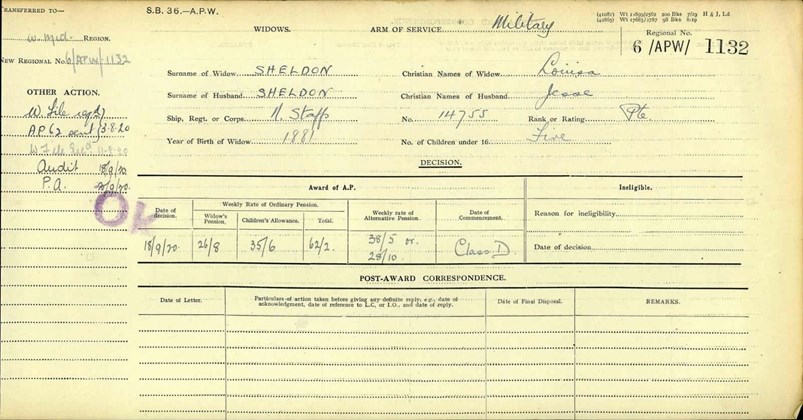 TRANSFERRED TO—
W. Mid. REGION.
NEW REGIONAL No. 6/APW/1132
OTHER ACTION.
W File
AP62 sent 3.8.20
11.8.20
Audit 18/9/20
P.A. 21/9/20
OK
S.B. 36.—A.P.W.
WIDOWS.
ARM OF SERVICE Military
H & J, Ld
Regional No.
6 /APW/ 1132
Surname of Widow SHELDON
Christian Names of Widow Louisa
Surname of Husband SHELDON
Christian Names of Husband Jesse
Ship, Regt. or Corps. N. Staffs
No. 14755
Rank or Rating. Pte
Year of Birth of Widow 1881
No. of Children under 16. Five
DECISION.
Award of A.P.
Ineligible.
Date of decision.
Weekly Rate of Ordinary Pension.
Widow's Pension.
Children's Allowance.
Total.
Weekly rate of Alternative Pension.
Date of Commencement.
Reason for ineligibility
18/9/20
26/8
35/6
62/2
38/5 or
28/10
Class D.
Date of decision
POST-AWARD CORRESPONDENCE.
Date of Letter.
Particulars of action taken before giving any definite reply, e.g., date of
acknowledgment, date of reference to L.C. or I.O., and date of reply.
Date of Final Disposal.
REMARKS.